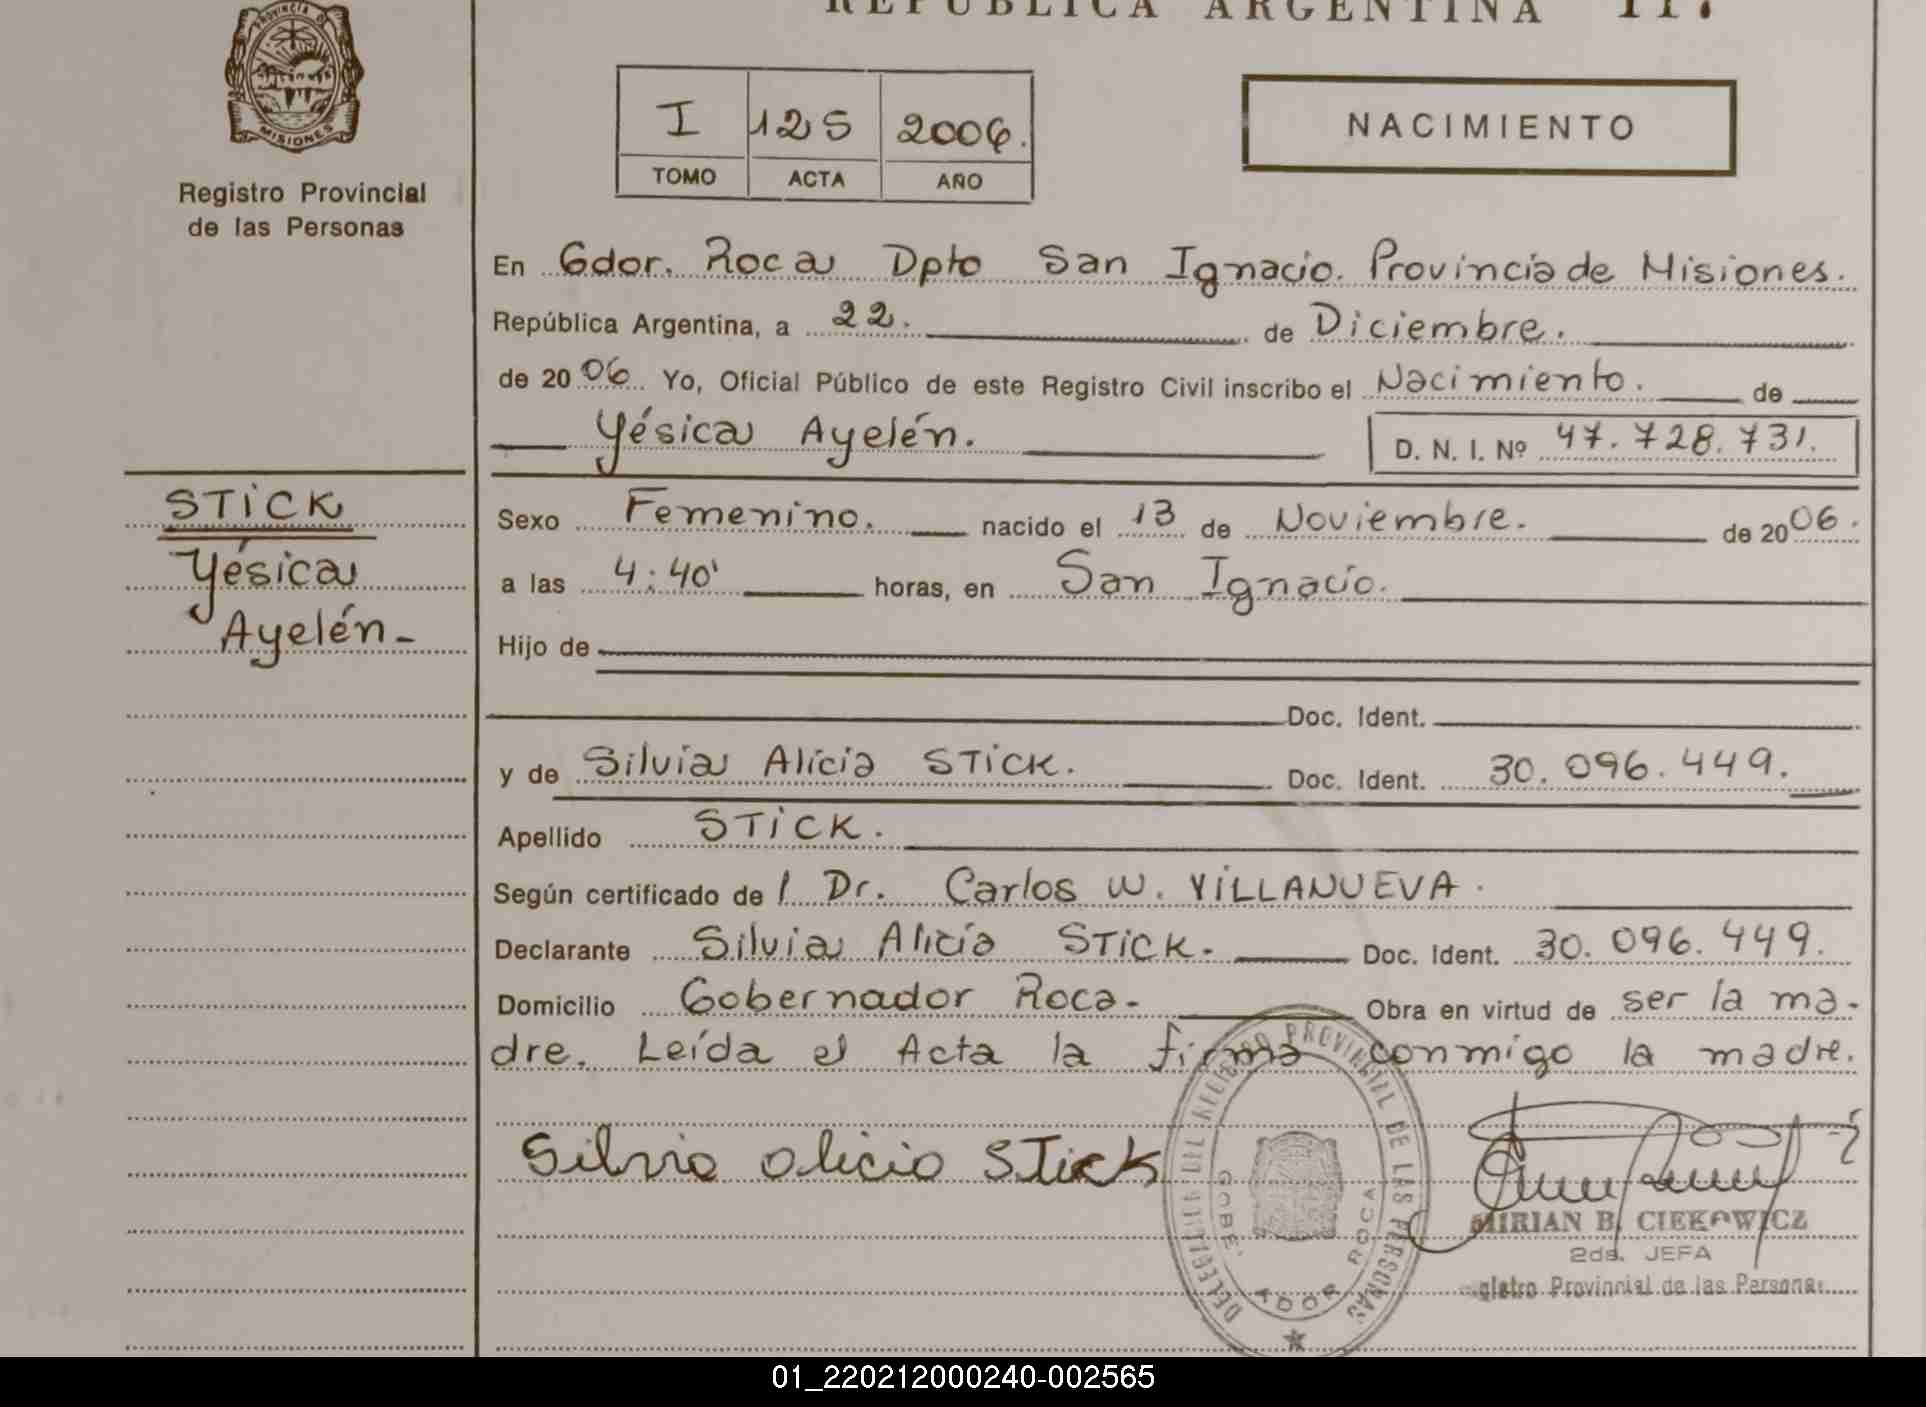 REPUBLICA ARGENTINA 117
PROVINCIA DE
MISIONES
Registro Provincial
de las Personas
I 125 2006.
TOMO ACTA AÑO
NACIMIENTO
En Gdor. Roca Dpto San Ignacio. Provincia de Misiones.
República Argentina, a 22. de Diciembre.
de 2006 Yo, Oficial Público de este Registro Civil inscribo el Nacimiento. de
Yésica Ayelén. D. N. I. Nº 47.728.731.
STICK
Yésica
Ayelén-
Sexo Femenino. nacido el 13 de Noviembre. de 2006.
a las 4:40' horas, en San Ignacio.
Hijo de
Doc. Ident.
y de Silvia Alicia STICK. Doc. Ident. 30.096.449.
Apellido STICK.
Según certificado de l Dr. Carlos W. VILLANUEVA.
Declarante Silvia Alicia STICK. Doc. Ident. 30.096.449.
Domicilio Gobernador Roca. Obra en virtud de ser la ma-
dre. Leída el Acta la firma conmigo la madre.
Silvia Alicia STick
DELEGACION DEL REGISTRO PROVINCIAL DE LAS PERSONAS
GOBERNADOR ROCA
MIRIAN B. CIEKOWICZ
2da. JEFA
Registro Provincial de las Personas
01_220212000240-002565